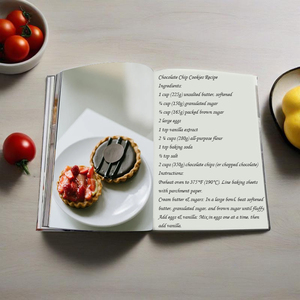 Chocolate Chip Cookies Recipe
Ingredients:
1 cup (225g) unsalted butter, softened
¾ cup (150g) granulated sugar
¾ cup (165g) packed brown sugar
2 large eggs
1 tsp vanilla extract
2 ¼ cups (280g) all-purpose flour
1 tsp baking soda
½ tsp salt
2 cups (350g) chocolate chips (or chopped chocolate)
Instructions:
Preheat oven to 375°F (190°C). Line baking sheets
with parchment paper.
Cream butter & sugars: In a large bowl, beat softened
butter, granulated sugar, and brown sugar until fluffy.
Add eggs & vanilla: Mix in eggs one at a time, then
add vanilla.